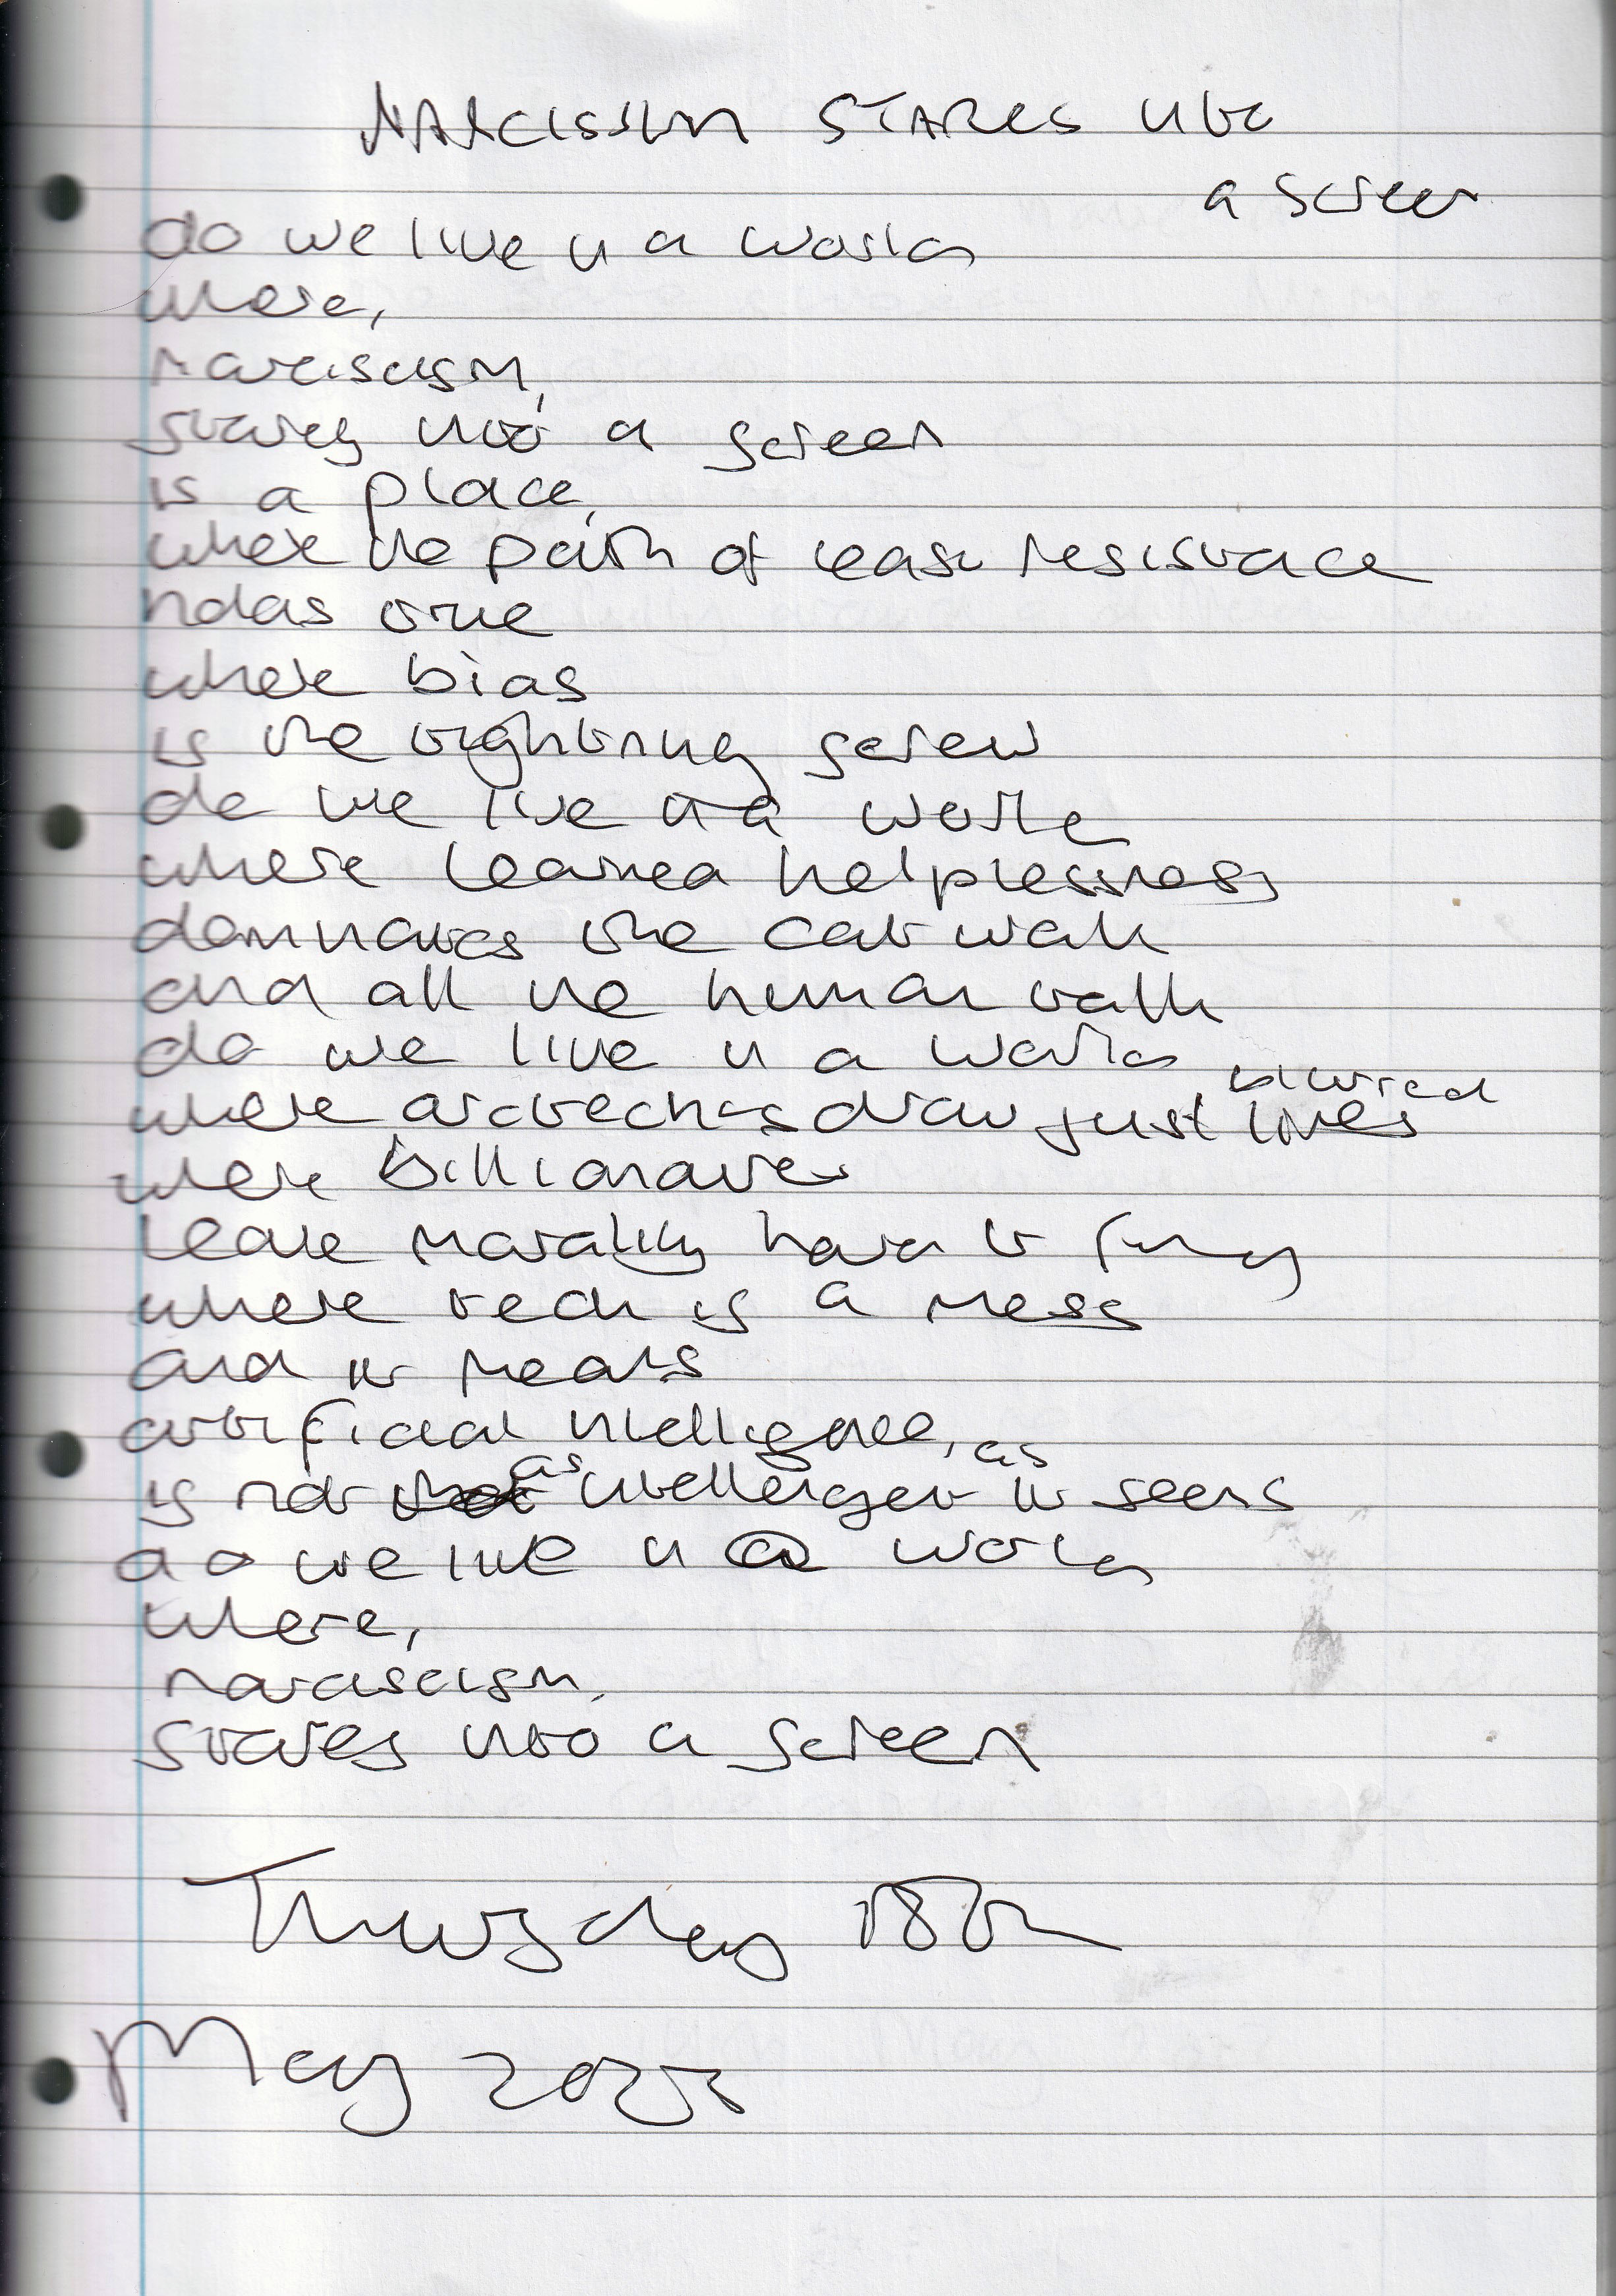 NARCISSISM STARES INTO
a screen
do we live in a world
where,
narcissism,
stares into a screen
is a place,
where the path of least resistance
holds true
where bias
is the tightening screw
do we live in a world
where learned helplessness
dominates the catwalk
and all the human talk
do we live in a world
blurred
where architects draw just lines
where billionaires
leave morality hard to find
where tech is a mess
and it means
artificial intelligence, as
is not as intelligent it seems
do we live in a world
where,
narcissism,
stares into a screen
Thursday 15th
May 2025